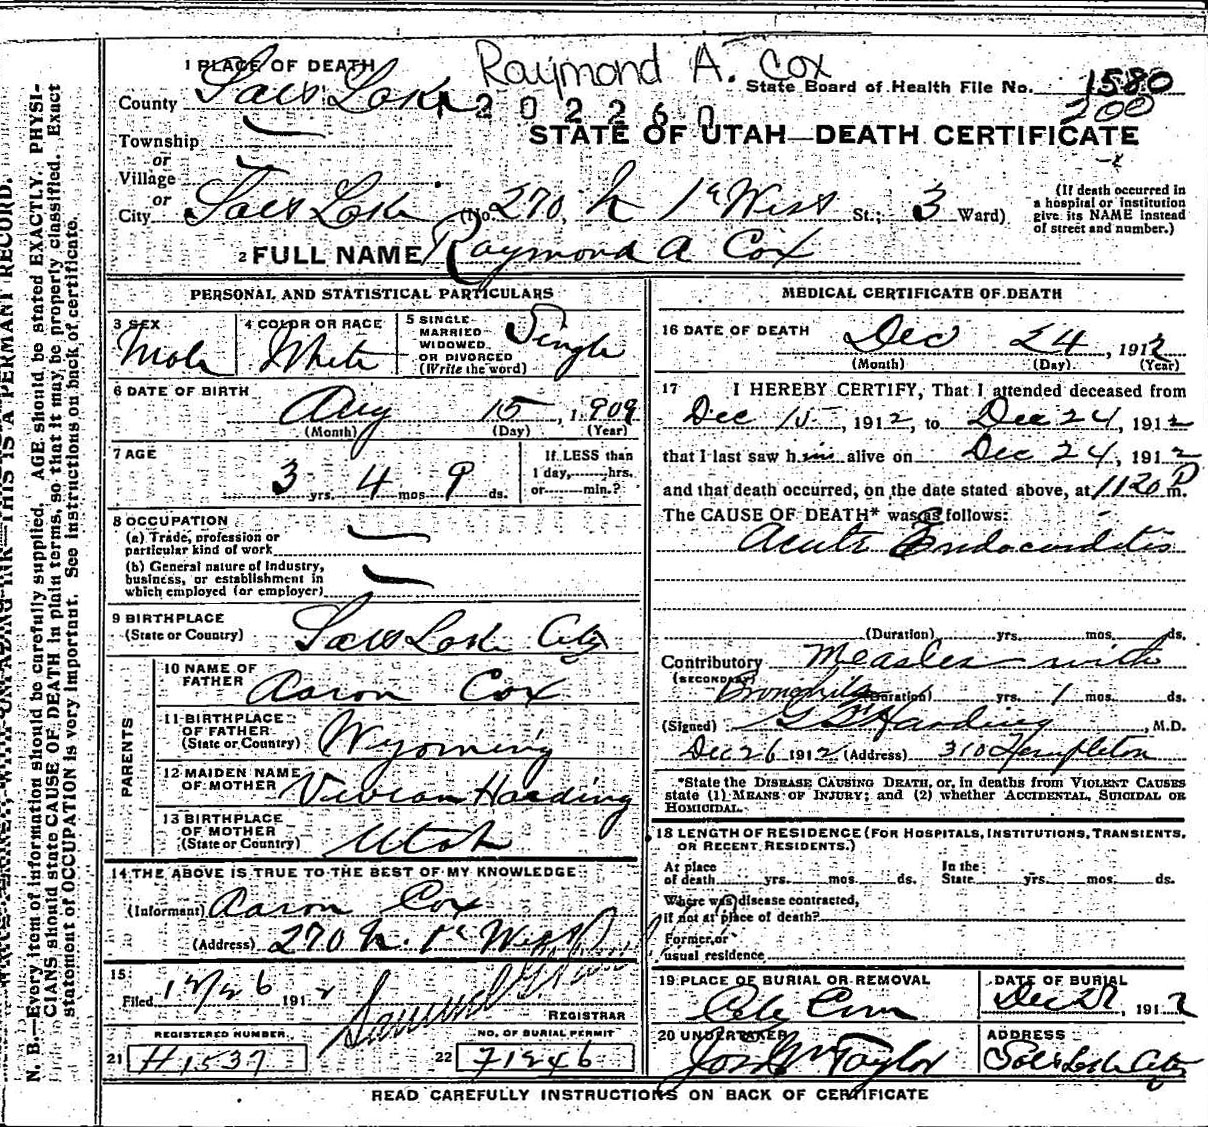 Raymond A. Cox
1 PLACE OF DEATH
State Board of Health File No. 1580
200
County Salt Lake
202260
STATE OF UTAH—DEATH CERTIFICATE
Township
or
Village
or
City Salt Lake (No. 270 N 1st West St.; 3 Ward)
(If death occurred in a hospital or institution give its NAME instead of street and number.)
2 FULL NAME Raymond A Cox
PERSONAL AND STATISTICAL PARTICULARS
3 SEX Male
4 COLOR OR RACE White
5 SINGLE MARRIED WIDOWED OR DIVORCED (Write the word) Single
6 DATE OF BIRTH
Aug 15, 1909
(Month) (Day) (Year)
7 AGE
3 yrs. 4 mos. 9 ds.
If LESS than
1 day, hrs.
or min.?
8 OCCUPATION
(a) Trade, profession or
particular kind of work
(b) General nature of Industry,
business, or establishment in
which employed (or employer)
9 BIRTHPLACE
(State or Country) Salt Lake City
PARENTS
10 NAME OF
FATHER Aaron Cox
11 BIRTHPLACE
OF FATHER
(State or Country) Wyoming
12 MAIDEN NAME
OF MOTHER Vivian Harding
13 BIRTHPLACE
OF MOTHER
(State or Country) Utah
14 THE ABOVE IS TRUE TO THE BEST OF MY KNOWLEDGE
(Informant) Aaron Cox
(Address) 270 N. 1st West
15
Filed 12/26 1912
REGISTRAR
REGISTERED NUMBER
21 H1537
NO. OF BURIAL PERMIT
22 71246
MEDICAL CERTIFICATE OF DEATH
16 DATE OF DEATH
Dec 24, 1912
(Month) (Day) (Year)
17 I HEREBY CERTIFY, That I attended deceased from
Dec 15, 1912, to Dec 24, 1912
that I last saw him alive on Dec 24, 1912
and that death occurred, on the date stated above, at 1120 P m.
The CAUSE OF DEATH* was as follows:
Acute Endocarditis
(Duration) yrs. mos. ds.
Contributory Measles with
(SECONDARY) Bronchitis (Duration) yrs. 1 mos. ds.
(Signed) Harding, M.D.
Dec 26 1912 (Address) 310 Templeton
*State the DISEASE CAUSING DEATH, or, in deaths from VIOLENT CAUSES
state (1) MEANS OF INJURY; and (2) whether ACCIDENTAL, SUICIDAL OR
HOMICIDAL.
18 LENGTH OF RESIDENCE (FOR HOSPITALS, INSTITUTIONS, TRANSIENTS,
OR RECENT RESIDENTS.)
At place
of death yrs. mos. ds.
In the
State yrs. mos. ds.
Where was disease contracted,
if not at place of death?
Former or
usual residence
19 PLACE OF BURIAL OR REMOVAL
DATE OF BURIAL
Dec 27, 1912
20 UNDERTAKER
Jos Wm Taylor
ADDRESS
Salt Lake City
READ CAREFULLY INSTRUCTIONS ON BACK OF CERTIFICATE
WRITE PLAINLY, WITH UNFADING INK—THIS IS A PERMANT RECORD.
N. B.—Every item of information should be carefully supplied. AGE should be stated EXACTLY. PHYSI-
CIANS should state CAUSE OF DEATH in plain terms, so that it may be properly classified. Exact
statement of OCCUPATION is very important. See instructions on back of certificate.